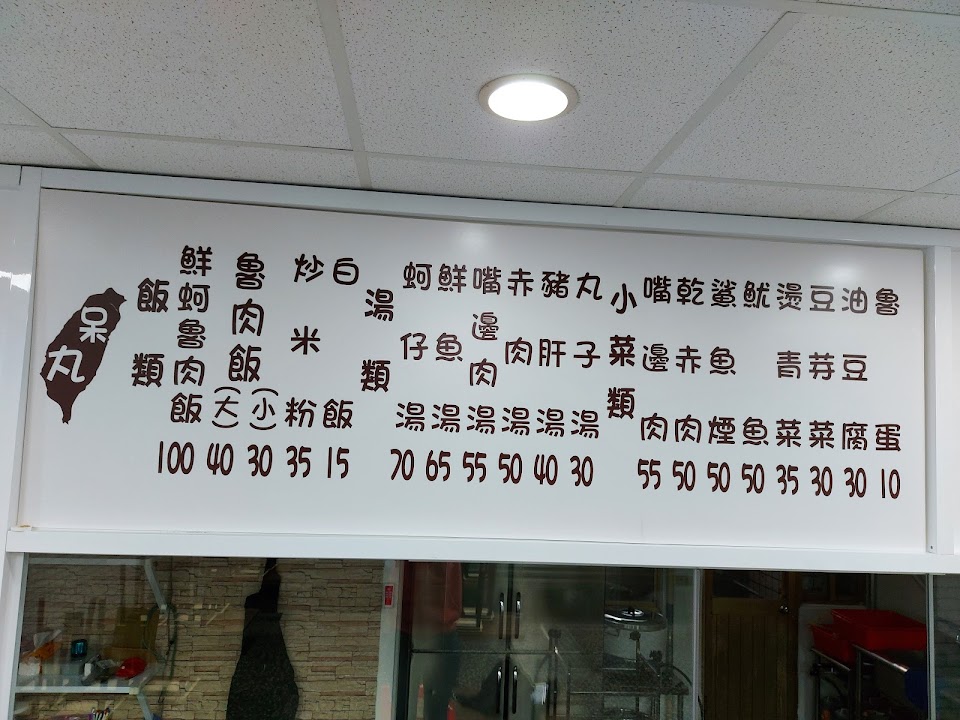 呆丸
飯類
鮮蚵魯肉飯 100
魯肉飯(大)(小) 40 30
炒米粉 35
白飯 15
湯類
蚵仔湯 70
鮮魚湯 65
嘴邊肉湯 55
赤肉湯 50
豬肝湯 40
丸子湯 30
小菜類
嘴邊肉 55
乾赤肉 50
鯊魚煙 50
魷魚 50
燙青菜 35
豆芽菜 30
油豆腐 30
魯蛋 10